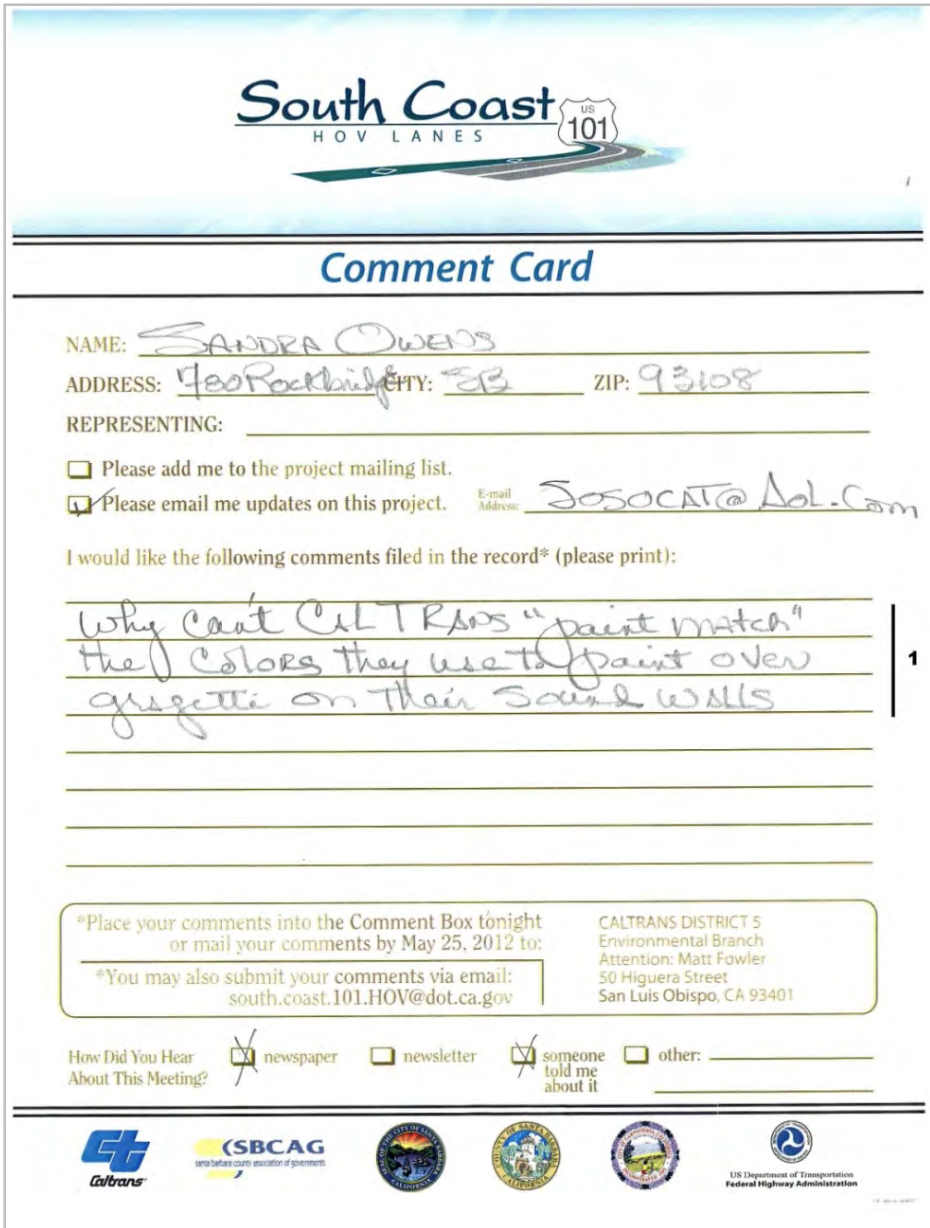 South Coast
HOV LANES
US
101
Comment Card
NAME: SANDRA OWENS
ADDRESS: 780 Rockbridge CITY: SB ZIP: 93108
REPRESENTING:
Please add me to the project mailing list.
Please email me updates on this project. E-mail Address: SOSOCAT@AOL.Com
I would like the following comments filed in the record* (please print):
Why can't CALTRANS "paint match"
the colors they use to paint over
gragetti on their sound walls
1
*Place your comments into the Comment Box tonight
or mail your comments by May 25, 2012 to:
*You may also submit your comments via email:
south.coast.101.HOV@dot.ca.gov
CALTRANS DISTRICT 5
Environmental Branch
Attention: Matt Fowler
50 Higuera Street
San Luis Obispo, CA 93401
How Did You Hear
About This Meeting?
newspaper
newsletter
someone
told me
about it
other:
Caltrans
SBCAG
santa barbara county association of governments
US Department of Transportation
Federal Highway Administration